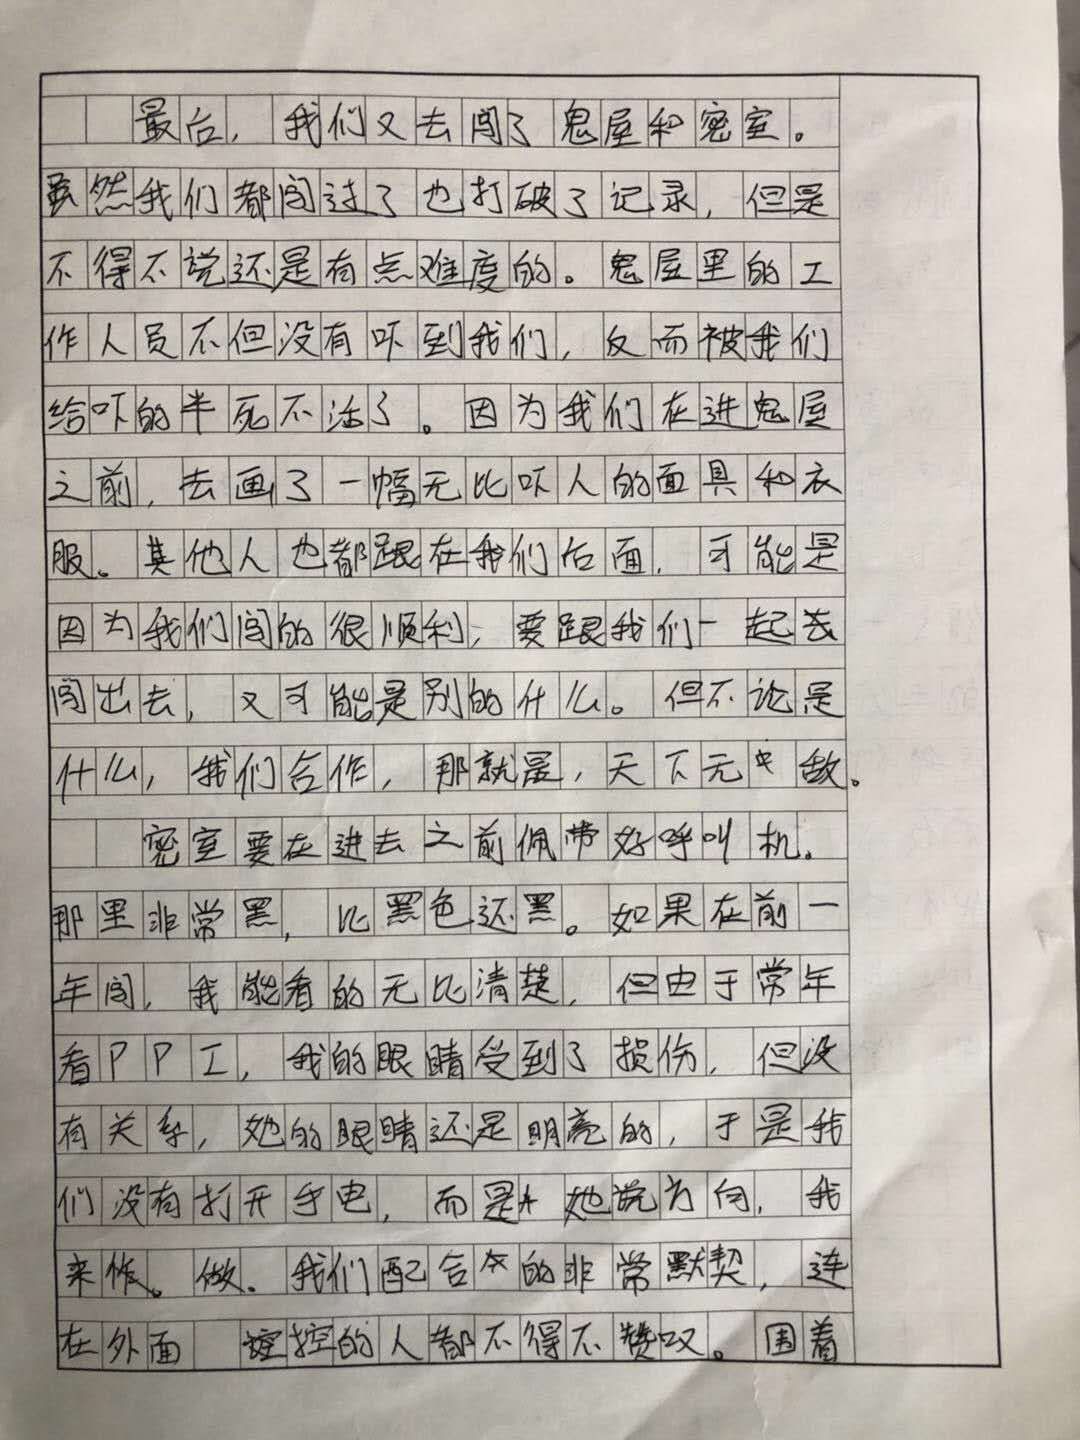 最后，我们又去闯了鬼屋和密室。
虽然我们都闯过了也打破了记录，但是
不得不说还是有点难度的。鬼屋里的工
作人员不但没有吓到我们，反而被我们
给吓的半死不活了。因为我们在进鬼屋
之前，去画了一幅无比吓人的面具和衣
服。其他人也都跟在我们后面，可能是
因为我们闯的很顺利，要跟我们一起去
闯出去，又可能是别的什么。但不论是
什么，我们合作，那就是，天下无敌。
密室要在进去之前佩带好呼叫机。
那里非常黑，比黑色还黑。如果在前一
年闯，我能看的无比清楚，但由于常年
看PPT，我的眼睛受到了损伤，但没
有关系，她的眼睛还是明亮的，于是我
们没有打开手电，而是她说方向，我
来作。做。我们配合的非常默契，连
在外面控的人都不得不赞叹。围着